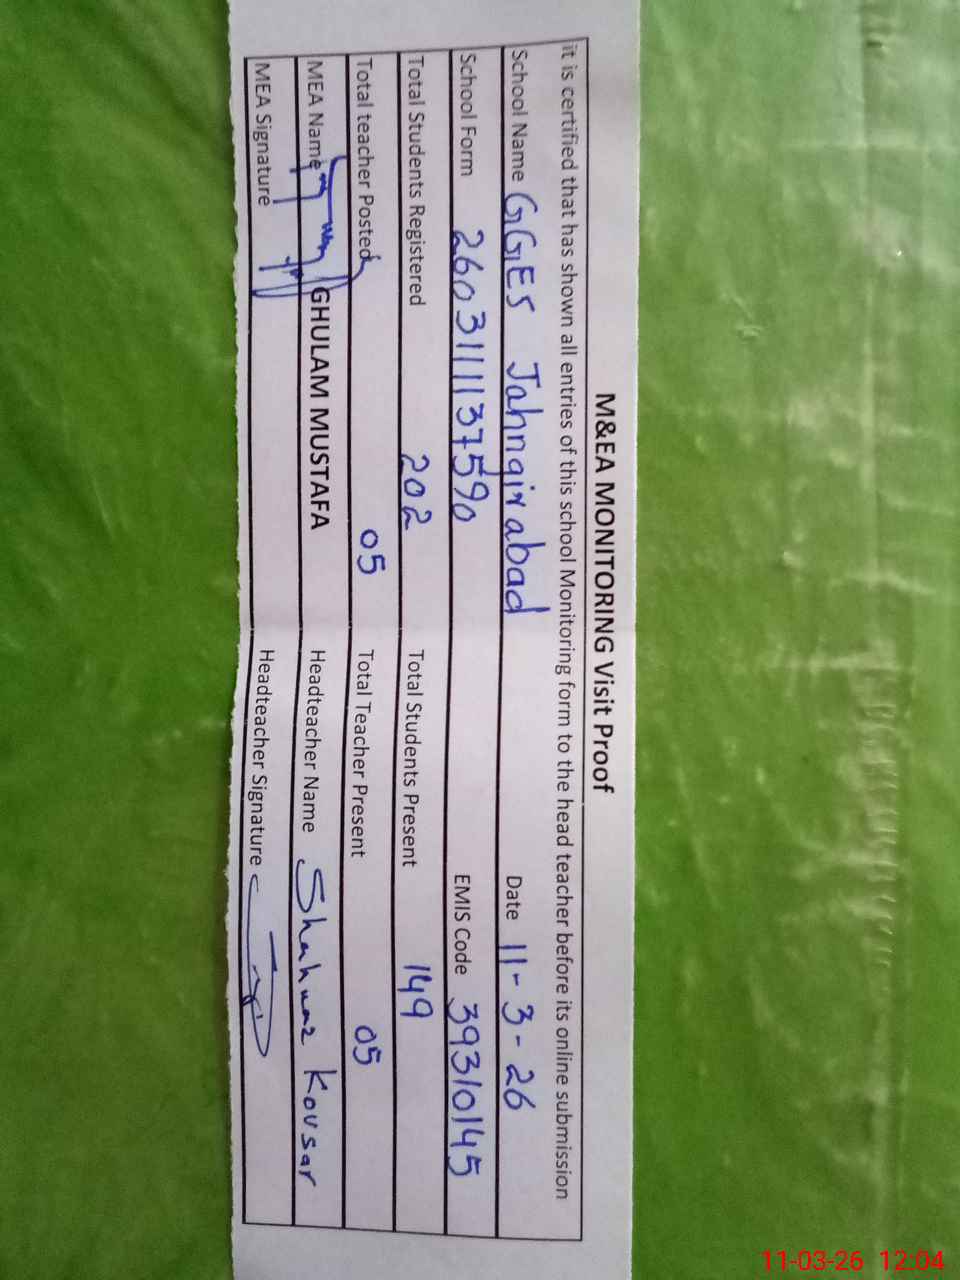 M&EA MONITORING Visit Proof
it is certified that has shown all entries of this school Monitoring form to the head teacher before its online submission
School Name GGES Jahngirabad Date 11-3-26
School Form 2603111137590 EMIS Code 39310145
Total Students Registered 202 Total Students Present 149
Total teacher Posted 05 Total Teacher Present 05
MEA Name GHULAM MUSTAFA Headteacher Name Shahnaz Kousar
MEA Signature Headteacher Signature
11-03-26 12:04